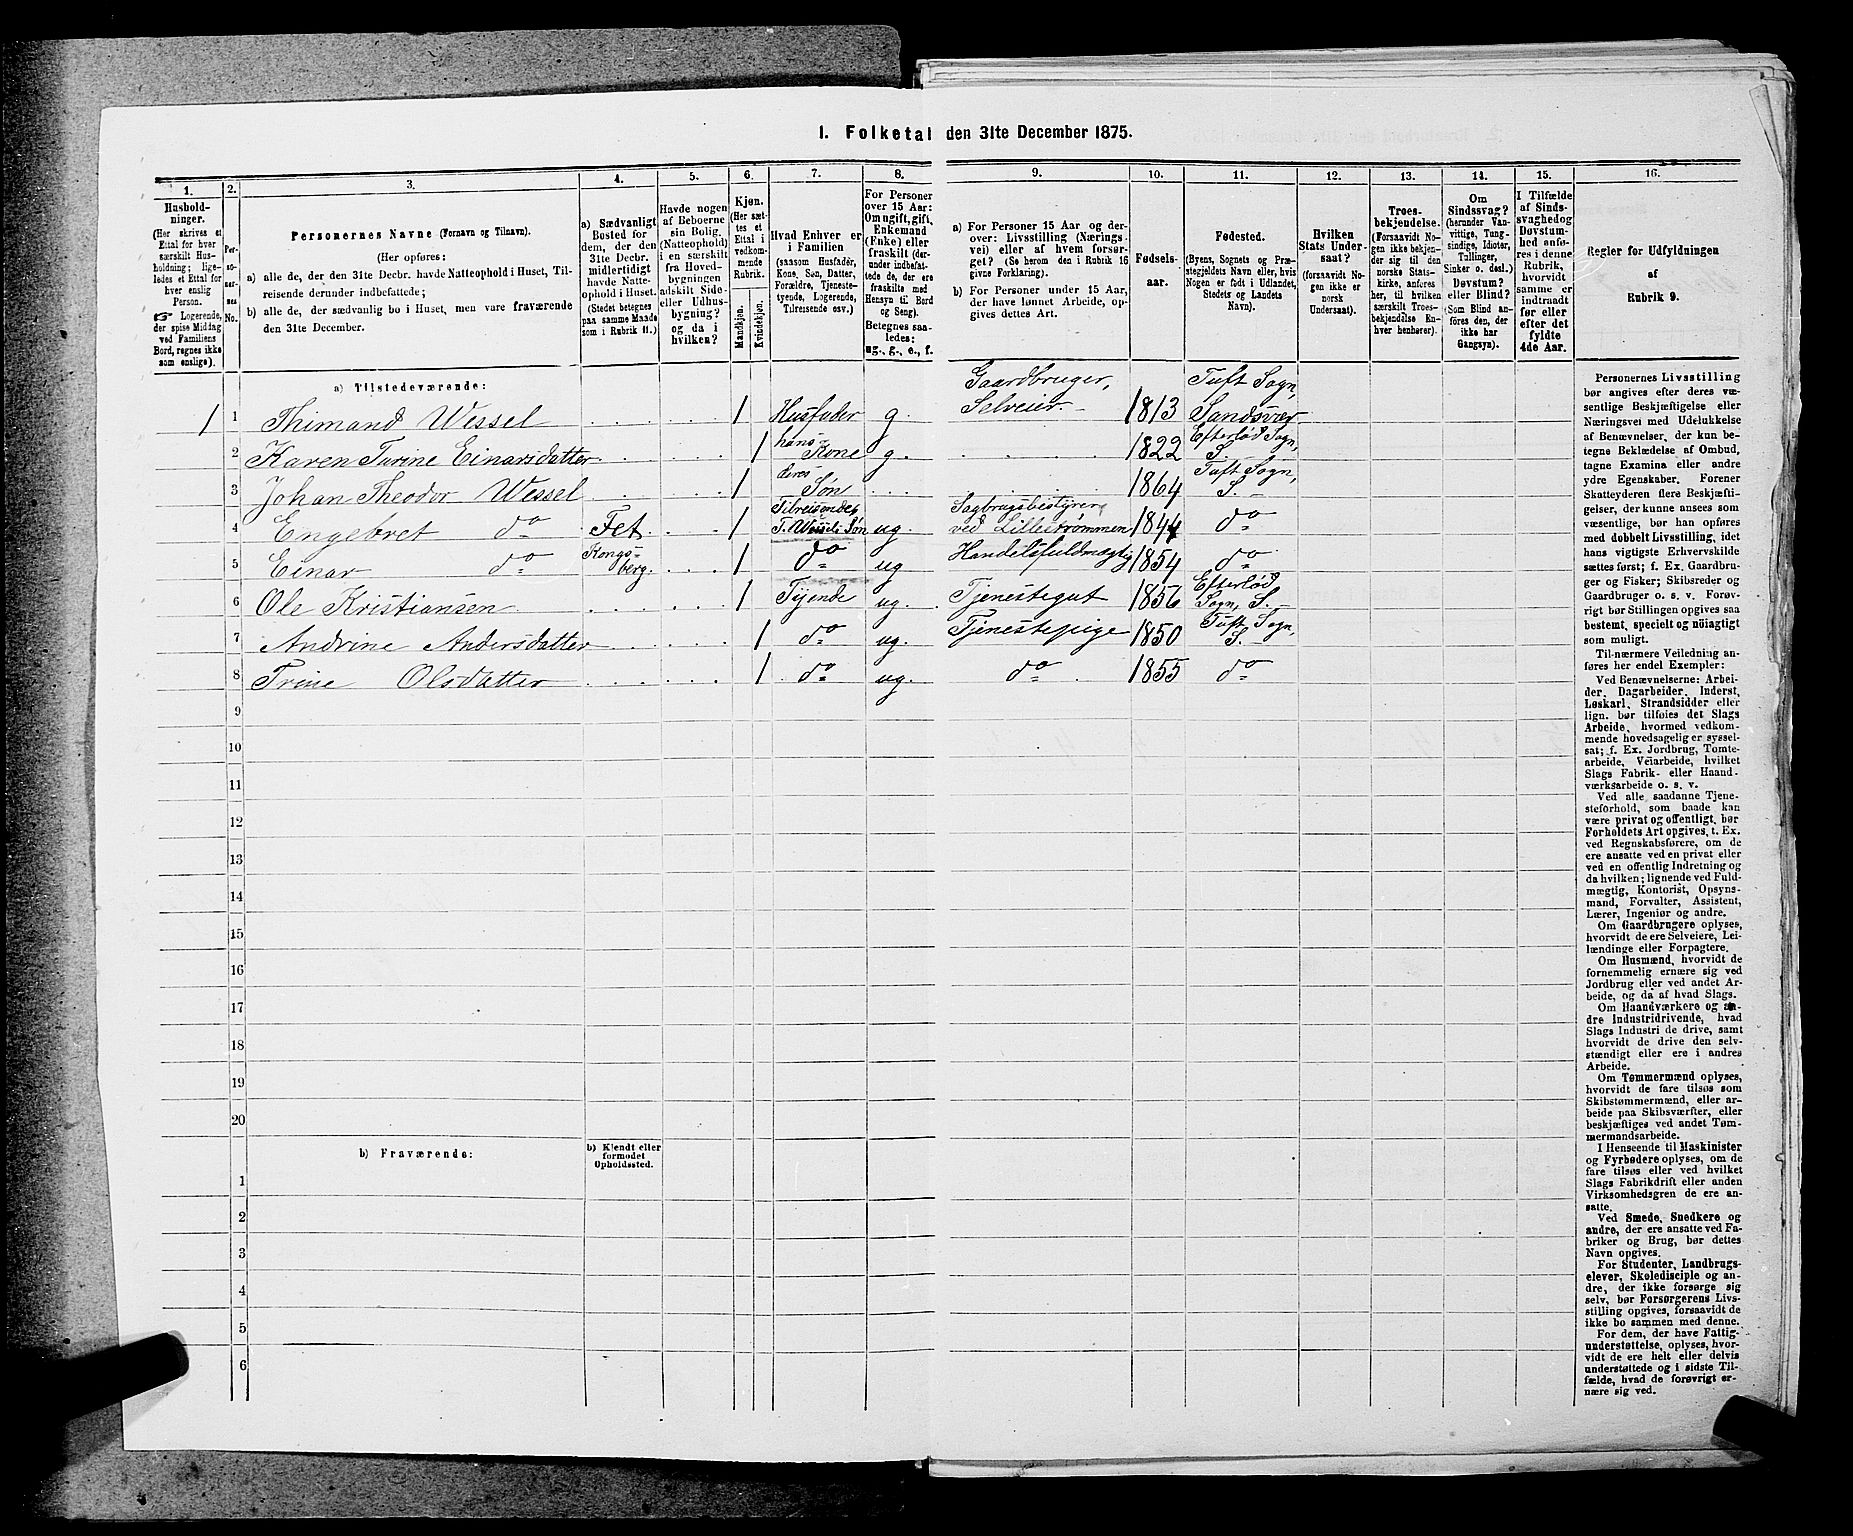 1. Folketal den 31te December 1875.
1.
Hushold-
ninger.
(Her skrives et
Ettal for hver
særskilt Hus-
holdning; lige-
ledes et Ettal for
hver enslig
Person.
☞ Logerende,
der spise Middag
ved Familiens
Bord, regnes ikke
som enslige).
2.
Per-
so-
ner-
nes
No.
3.
Personernes Navne (Fornavn og Tilnavn).
(Her opføres:
a) alle de, der den 31te Decbr. havde Natteophold i Huset, Til-
reisende derunder indbefattede;
b) alle de, der sædvanlig bo i Huset, men vare fraværende
den 31te December.
4.
a) Sædvanligt
Bosted for
dem, der den
31te Decbr.
midlertidigt
havde Natte-
ophold i Huset.
(Stedet betegnes
paa samme Maade
som i Rubrik 11.)
5.
Havde nogen
af Beboerne
sin Bolig,
(Natteophold)
i en særskilt
fra Hoved-
bygningen
adskilt Side-
eller Udhus-
bygning?
og da i
hvilken?
6.
Kjøn.
(Her sæt-
tes et
Ettal i
vedkom-
mende
Rubrik.
Mandkjøn.
Kvindekjøn.
7.
Hvad Enhver er
i Familien
(saasom Husfader,
Kone, Søn, Datter,
Forældre, Tjeneste-
tyende, Logerende,
Tilreisende osv.)
8.
For Personer
over 15 Aar:
Om ugift, gift,
Enkemand
(Enke) eller
fraskilt (der-
under indbefat-
tede de, der ere
fraskilte med
Hensyn til Bord
og Seng).
Betegnes saa-
ledes:
ug., g., e., f.
9.
a) For Personer 15 Aar og der-
over: Livsstilling (Nærings-
vei) eller af hvem forsør-
get? (Se herom den i Rubrik 16
givne Forklaring).
b) For Personer under 15 Aar,
der have lønnet Arbeide, op-
gives dettes Art.
10.
Fødsels-
aar.
11.
Fødested.
(Byens, Sognets og Præ-
stegjeldets Navn eller, hvis
Nogen er født i Udlandet,
Stedets og Landets
Navn).
12.
Hvilken
Stats Under-
saat?
(forsaavidt No-
gen ikke er
norsk
Undersaat).
13.
Troes-
bekjendelse.
(Forsaavidt No-
gen ikke bekjen-
der sig til den
norske Stats-
kirke, anføres
her, til hvilken
særskilt Troes-
bekjendelse En-
hver henhører).
14.
Om
Sindssvag?
(herunder Van-
vittige, Tung-
sindige, Idioter,
Tullinger,
Sinker o. desl.)
Døvstum?
eller Blind?
(Som Blind an-
føres den, der
ikke har
Gangsyn).
15.
I Tilfælde
af Sinds-
svaghed og
Døvstum-
hed anfø-
res i denne
Rubrik,
hvorvidt
samme er
indtraadt
før eller
efter det
fyldte
4de Aar.
16.
Regler for Udfyldningen
af
Rubrik 9.
a) Tilstedeværende:
1 1 Thimand Wessel 1 Husfader g. Gaardbruger, Selveier. 1813 Tuft Sogn, Sandsvær
2 Karen Turine Einarsdatter 1 hans Kone g. 1822 Efterlød Sogn, S.
3 Johan Theodor Wessel 1 deres Søn 1864 Tuft Sogn, S.
4 Engebret do Fet 1 Tilreisende, T. Wessels Søn ug Sagbrugsbestyrer ved Lillestrømmen 1844 do
5 Einar do Kongs-berg. 1 do ug Handelsfuldmægtig 1854 do
6 Ole Kristiansen 1 Tyende ug. Tjenestegut 1856 Efterlød Sogn, S.
7 Andrine Andersdatter 1 do ug. Tjenestepige 1850 Tuft Sogn, S.
8 Trine Olsdatter 1 do ug. do 1855 do
9
10
11
12
13
14
15
16
17
18
19
20
b) Fraværende:
b) Kjendt eller
formodet
Opholdssted.
1
2
3
4
5
6
Personernes Livsstilling
bør angives efter deres væ-
sentlige Beskjæftigelse eller
Næringsvei med Udelukkelse
af Benævnelser, der kun be-
tegne Beklædelse af Ombud,
tagne Examina eller andre
ydre Egenskaber. Forener
Skatteyderen flere Beskjæfti-
gelser, der kunne ansees som
væsentlige, bør han opføres
med dobbelt Livsstilling, idet
hans vigtigste Erhvervskilde
sættes først; f. Ex. Gaardbru-
ger og Fisker; Skibsreder og
Gaardbruger o. s. v. Forøv-
rigt bør Stillingen opgives saa
bestemt, specielt og nøiagtigt
som muligt.
Til nærmere Veiledning an-
føres her endel Exempler:
Ved Benævnelserne: Arbei-
der, Dagarbeider, Inderst,
Løskarl, Strandsidder eller
lign. bør tilføies det Slags
Arbeide, hvormed vedkom-
mende hovedsagelig er syssel-
sat; f. Ex. Jordbrug, Tomte-
arbeide, Veiarbeide, hvilket
Slags Fabrik- eller Haand-
værksarbeide o. s. v.
Ved alle saadanne Tjene-
steforhold, som baade kan
være privat og offentligt, bør
Forholdets Art opgives, t. Ex.
ved Regnskabsførere, om de
ere ansatte ved en privat eller
ved en offentlig Indretning og
da hvilken; lignende ved Fuld-
mægtig, Kontorist, Opsyns-
mand, Forvalter, Assistent,
Lærer, Ingeniør og andre.
Om Gaardbrugere oplyses,
hvorvidt de ere Selveiere, Lei-
lændinge eller Forpagtere.
Om Husmænd, hvorvidt de
fornemmelig ernære sig ved
Jordbrug eller ved andet Ar-
beide, og da af hvad Slags.
Om Haandværkere og an-
dre Industridrivende, hvad
Slags Industri de drive, samt
hvorvidt de drive den selv-
stændigt eller ere i andres
Arbeide.
Om Tømmermænd oplyses,
hvorvidt de fare tilsøs som
Skibstømmermænd, eller ar-
beide paa Skibsværfter, eller
beskjæftiges ved andet Tøm-
mermandsarbeide.
I Henseende til Maskinister
og Fyrbødere oplyses, om de
fare tilsøs eller ved hvilket
Slags Fabrikdrift eller anden
Virksomhedsgren de ere an-
satte.
Ved Smede, Snedkere og
andre, der ere ansatte ved Fa-
briker og Brug, bør dettes
Navn opgives.
For Studenter, Landbrugs-
elever, Skoledisciple og an-
dre, der ikke forsørge sig
selv, bør Forsørgerens Livs-
stilling opgives, forsaavidt de
ikke bo sammen med denne.
For dem, der have Fattig-
understøttelse, oplyses, hvor-
vidt de ere helt eller delvis
understøttede og i sidste Til-
fælde, hvad de forøvrigt er-
nære sig ved.